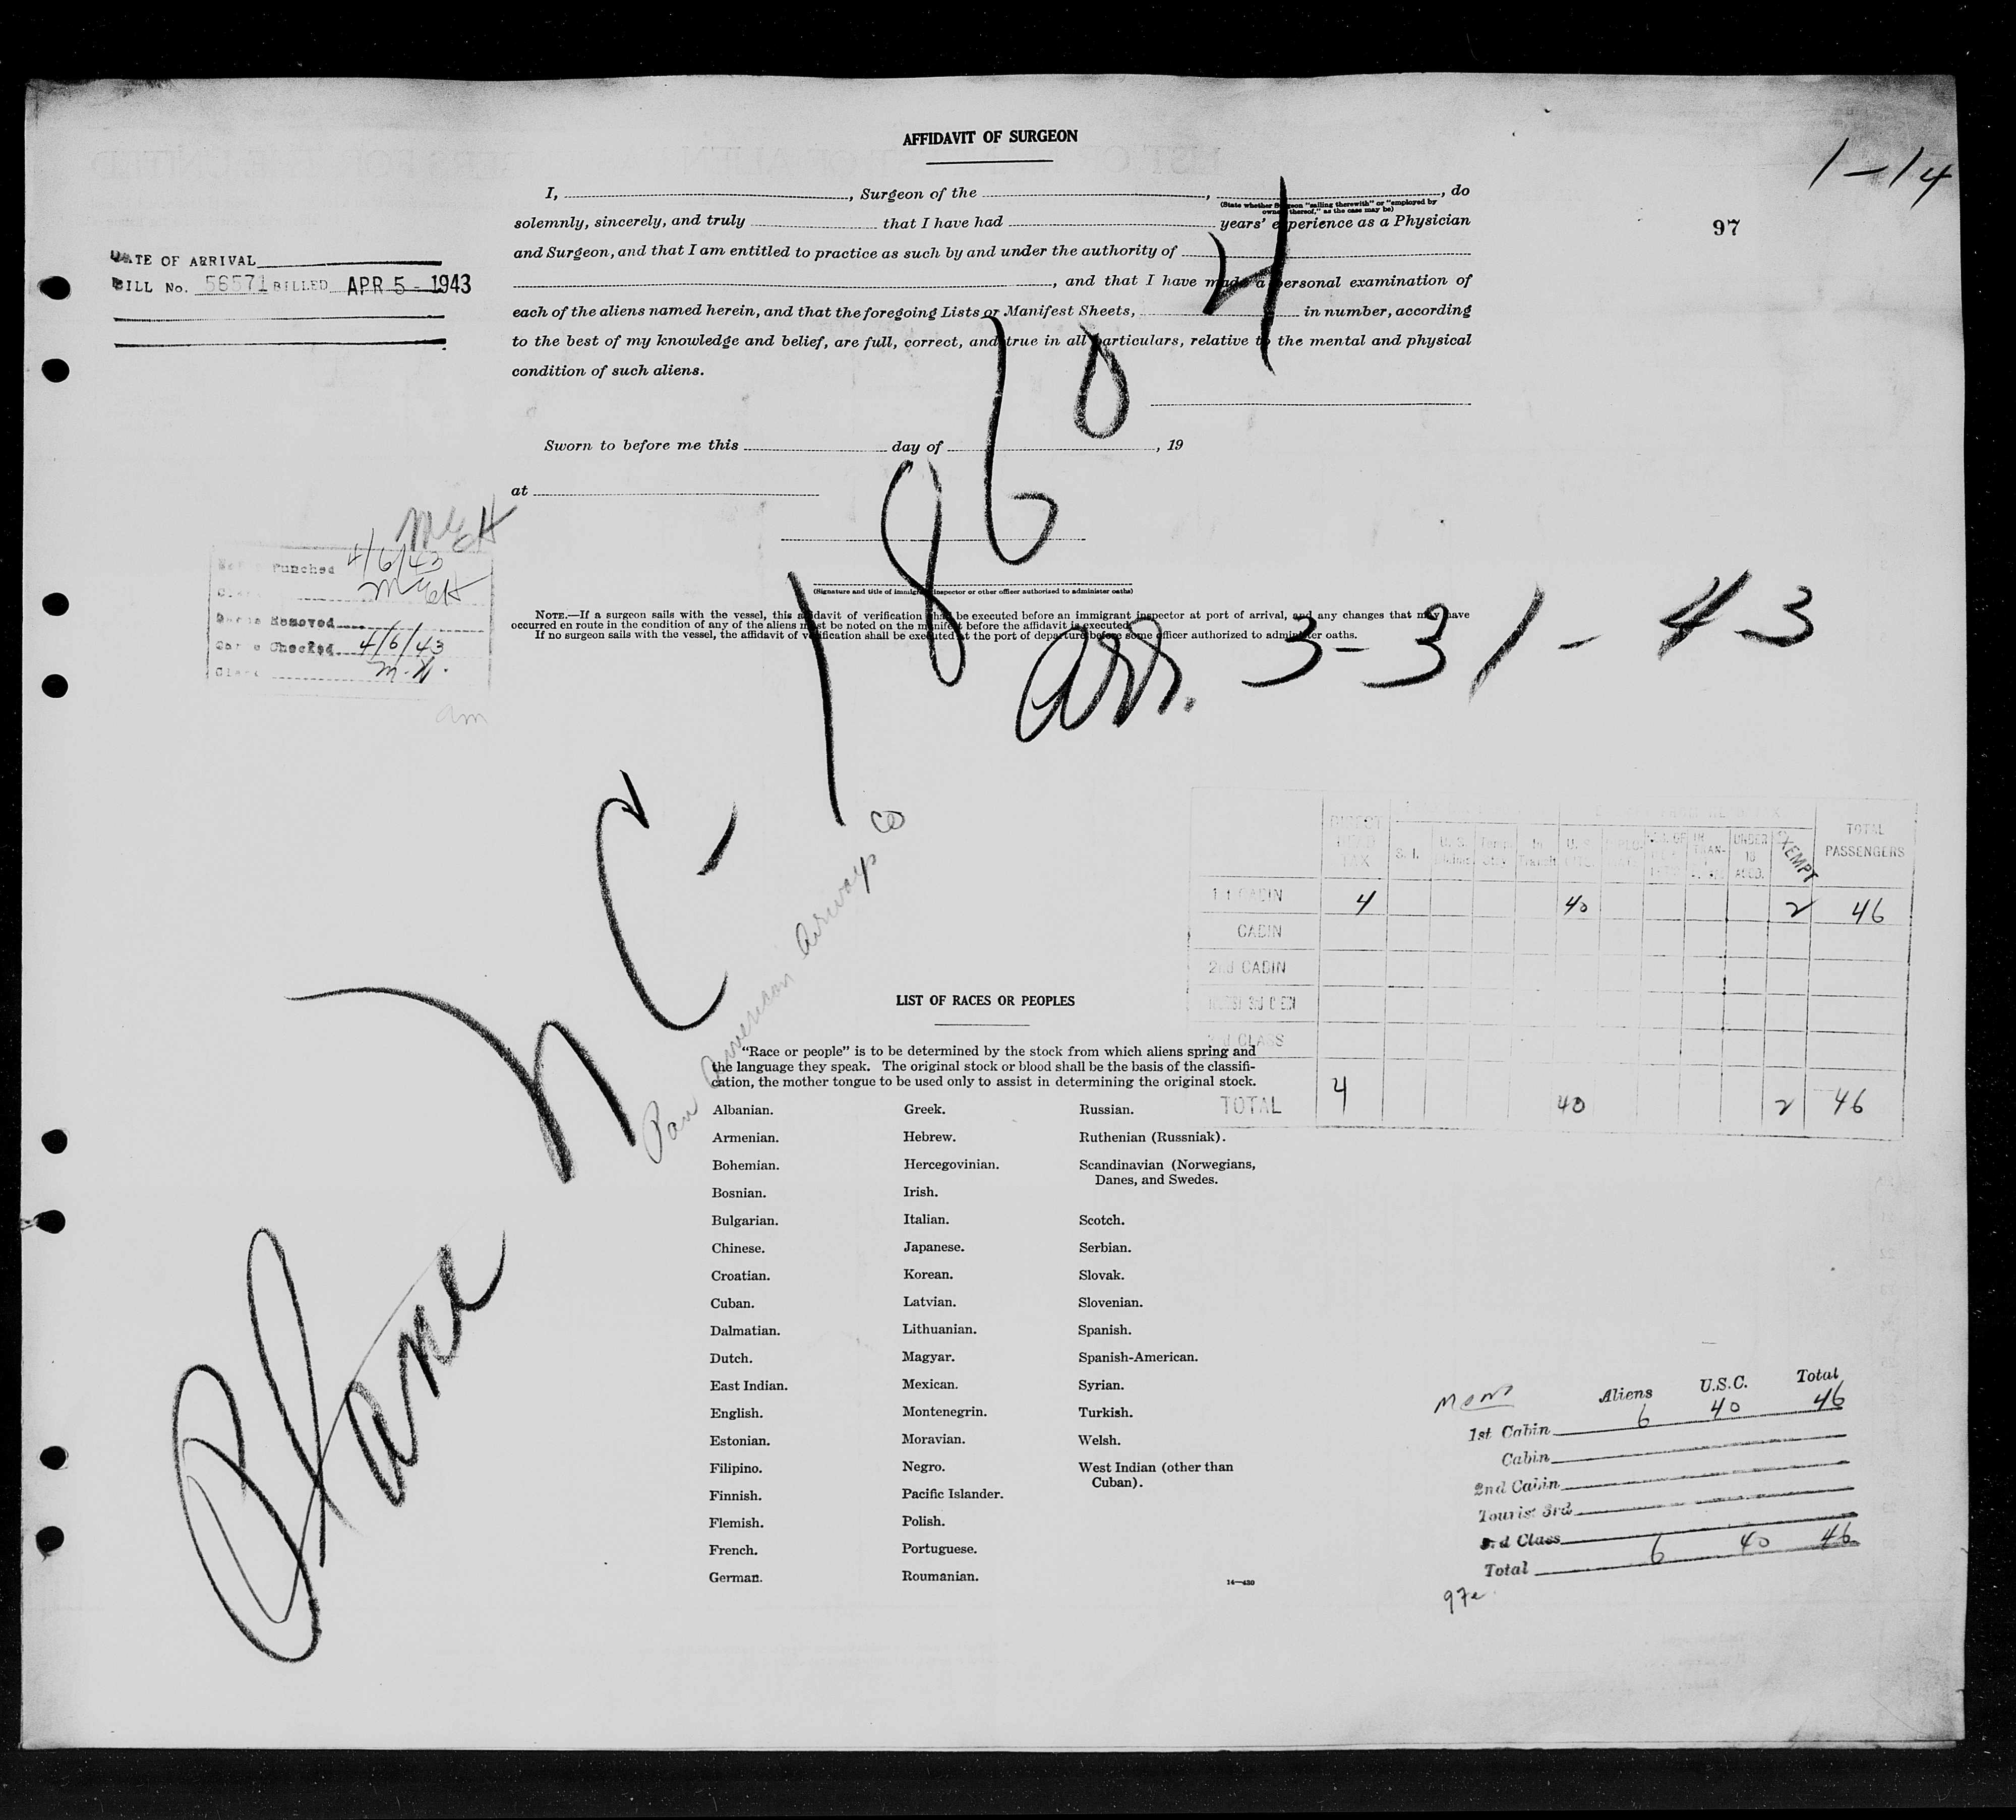 AFFIDAVIT OF SURGEON
1-14
97
I, , Surgeon of the , , do
(State whether Surgeon "sailing therewith" or "employed by
owner thereof," as the case may be)
solemnly, sincerely, and truly that I have had years' experience as a Physician
and Surgeon, and that I am entitled to practice as such by and under the authority of
, and that I have made a personal examination of
each of the aliens named herein, and that the foregoing Lists or Manifest Sheets, in number, according
to the best of my knowledge and belief, are full, correct, and true in all particulars, relative to the mental and physical
condition of such aliens.
DATE OF ARRIVAL
BILL No. 56571 BILLED APR 5 - 1943
Sworn to before me this day of , 19
at
(Signature and title of immigrant inspector or other officer authorized to administer oaths)
NOTE.—If a surgeon sails with the vessel, this affidavit of verification shall be executed before an immigrant inspector at port of arrival, and any changes that may have
occurred en route in the condition of any of the aliens must be noted on the manifest before the affidavit is executed.
If no surgeon sails with the vessel, the affidavit of verification shall be executed at the port of departure before some officer authorized to administer oaths.
Punched 4/6/43
Removed
Checked 4/6/43
Clerk M.H.
am
Plane NC-18604
arr. 3-31-43
Pan American Airways Co
DIRECT HEAD TAX S.I. U.S. In Transit UNDER 16 EXEMPT TOTAL PASSENGERS
1st CABIN 4 40 2 46
CABIN
2nd CABIN
3rd CLASS
TOTAL 4 40 2 46
LIST OF RACES OR PEOPLES
"Race or people" is to be determined by the stock from which aliens spring and
the language they speak. The original stock or blood shall be the basis of the classifi-
cation, the mother tongue to be used only to assist in determining the original stock.
Albanian.
Armenian.
Bohemian.
Bosnian.
Bulgarian.
Chinese.
Croatian.
Cuban.
Dalmatian.
Dutch.
East Indian.
English.
Estonian.
Filipino.
Finnish.
Flemish.
French.
German.
Greek.
Hebrew.
Hercegovinian.
Irish.
Italian.
Japanese.
Korean.
Latvian.
Lithuanian.
Magyar.
Mexican.
Montenegrin.
Moravian.
Negro.
Pacific Islander.
Polish.
Portuguese.
Roumanian.
Russian.
Ruthenian (Russniak).
Scandinavian (Norwegians,
Danes, and Swedes.
Scotch.
Serbian.
Slovak.
Slovenian.
Spanish.
Spanish-American.
Syrian.
Turkish.
Welsh.
West Indian (other than
Cuban).
14—430
Aliens U.S.C. Total
1st Cabin 6 40 46
Cabin
2nd Cabin
Tourist 3rd
3rd Class
Total 6 40 46